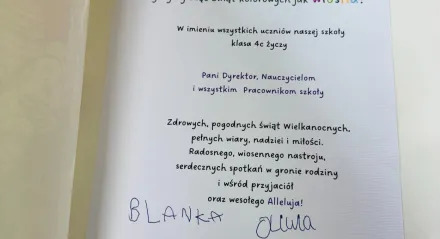 kolorowych jak wiosna!
W imieniu wszystkich uczniów naszej szkoły
klasa 4c życzy
Pani Dyrektor, Nauczycielom
i wszystkim Pracownikom szkoły
Zdrowych, pogodnych świąt Wielkanocnych,
pełnych wiary, nadziei i miłości.
Radosnego, wiosennego nastroju,
serdecznych spotkań w gronie rodziny
i wśród przyjaciół
oraz wesołego Alleluja!
BLANKA